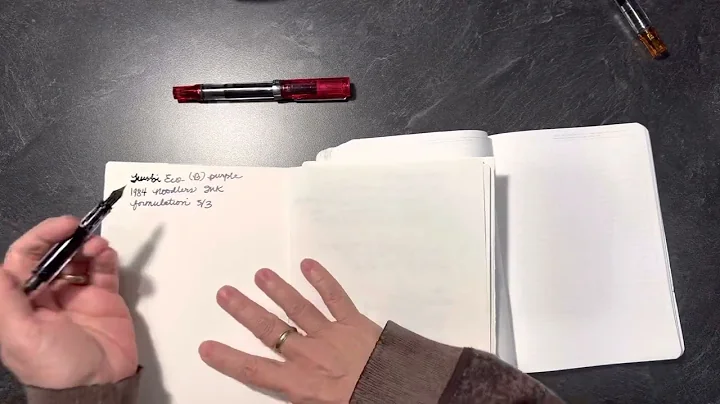 Twsbi Eco (B) purple
1984 Noodlers Ink
formulation 5/3